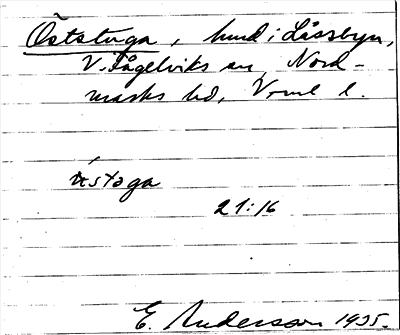 Öststuga, hmd i Låssbyn,
V. Fågelviks sn, Nord-
marks hd, Vrml l.
östoga
21:16
E. Anderson 1935.